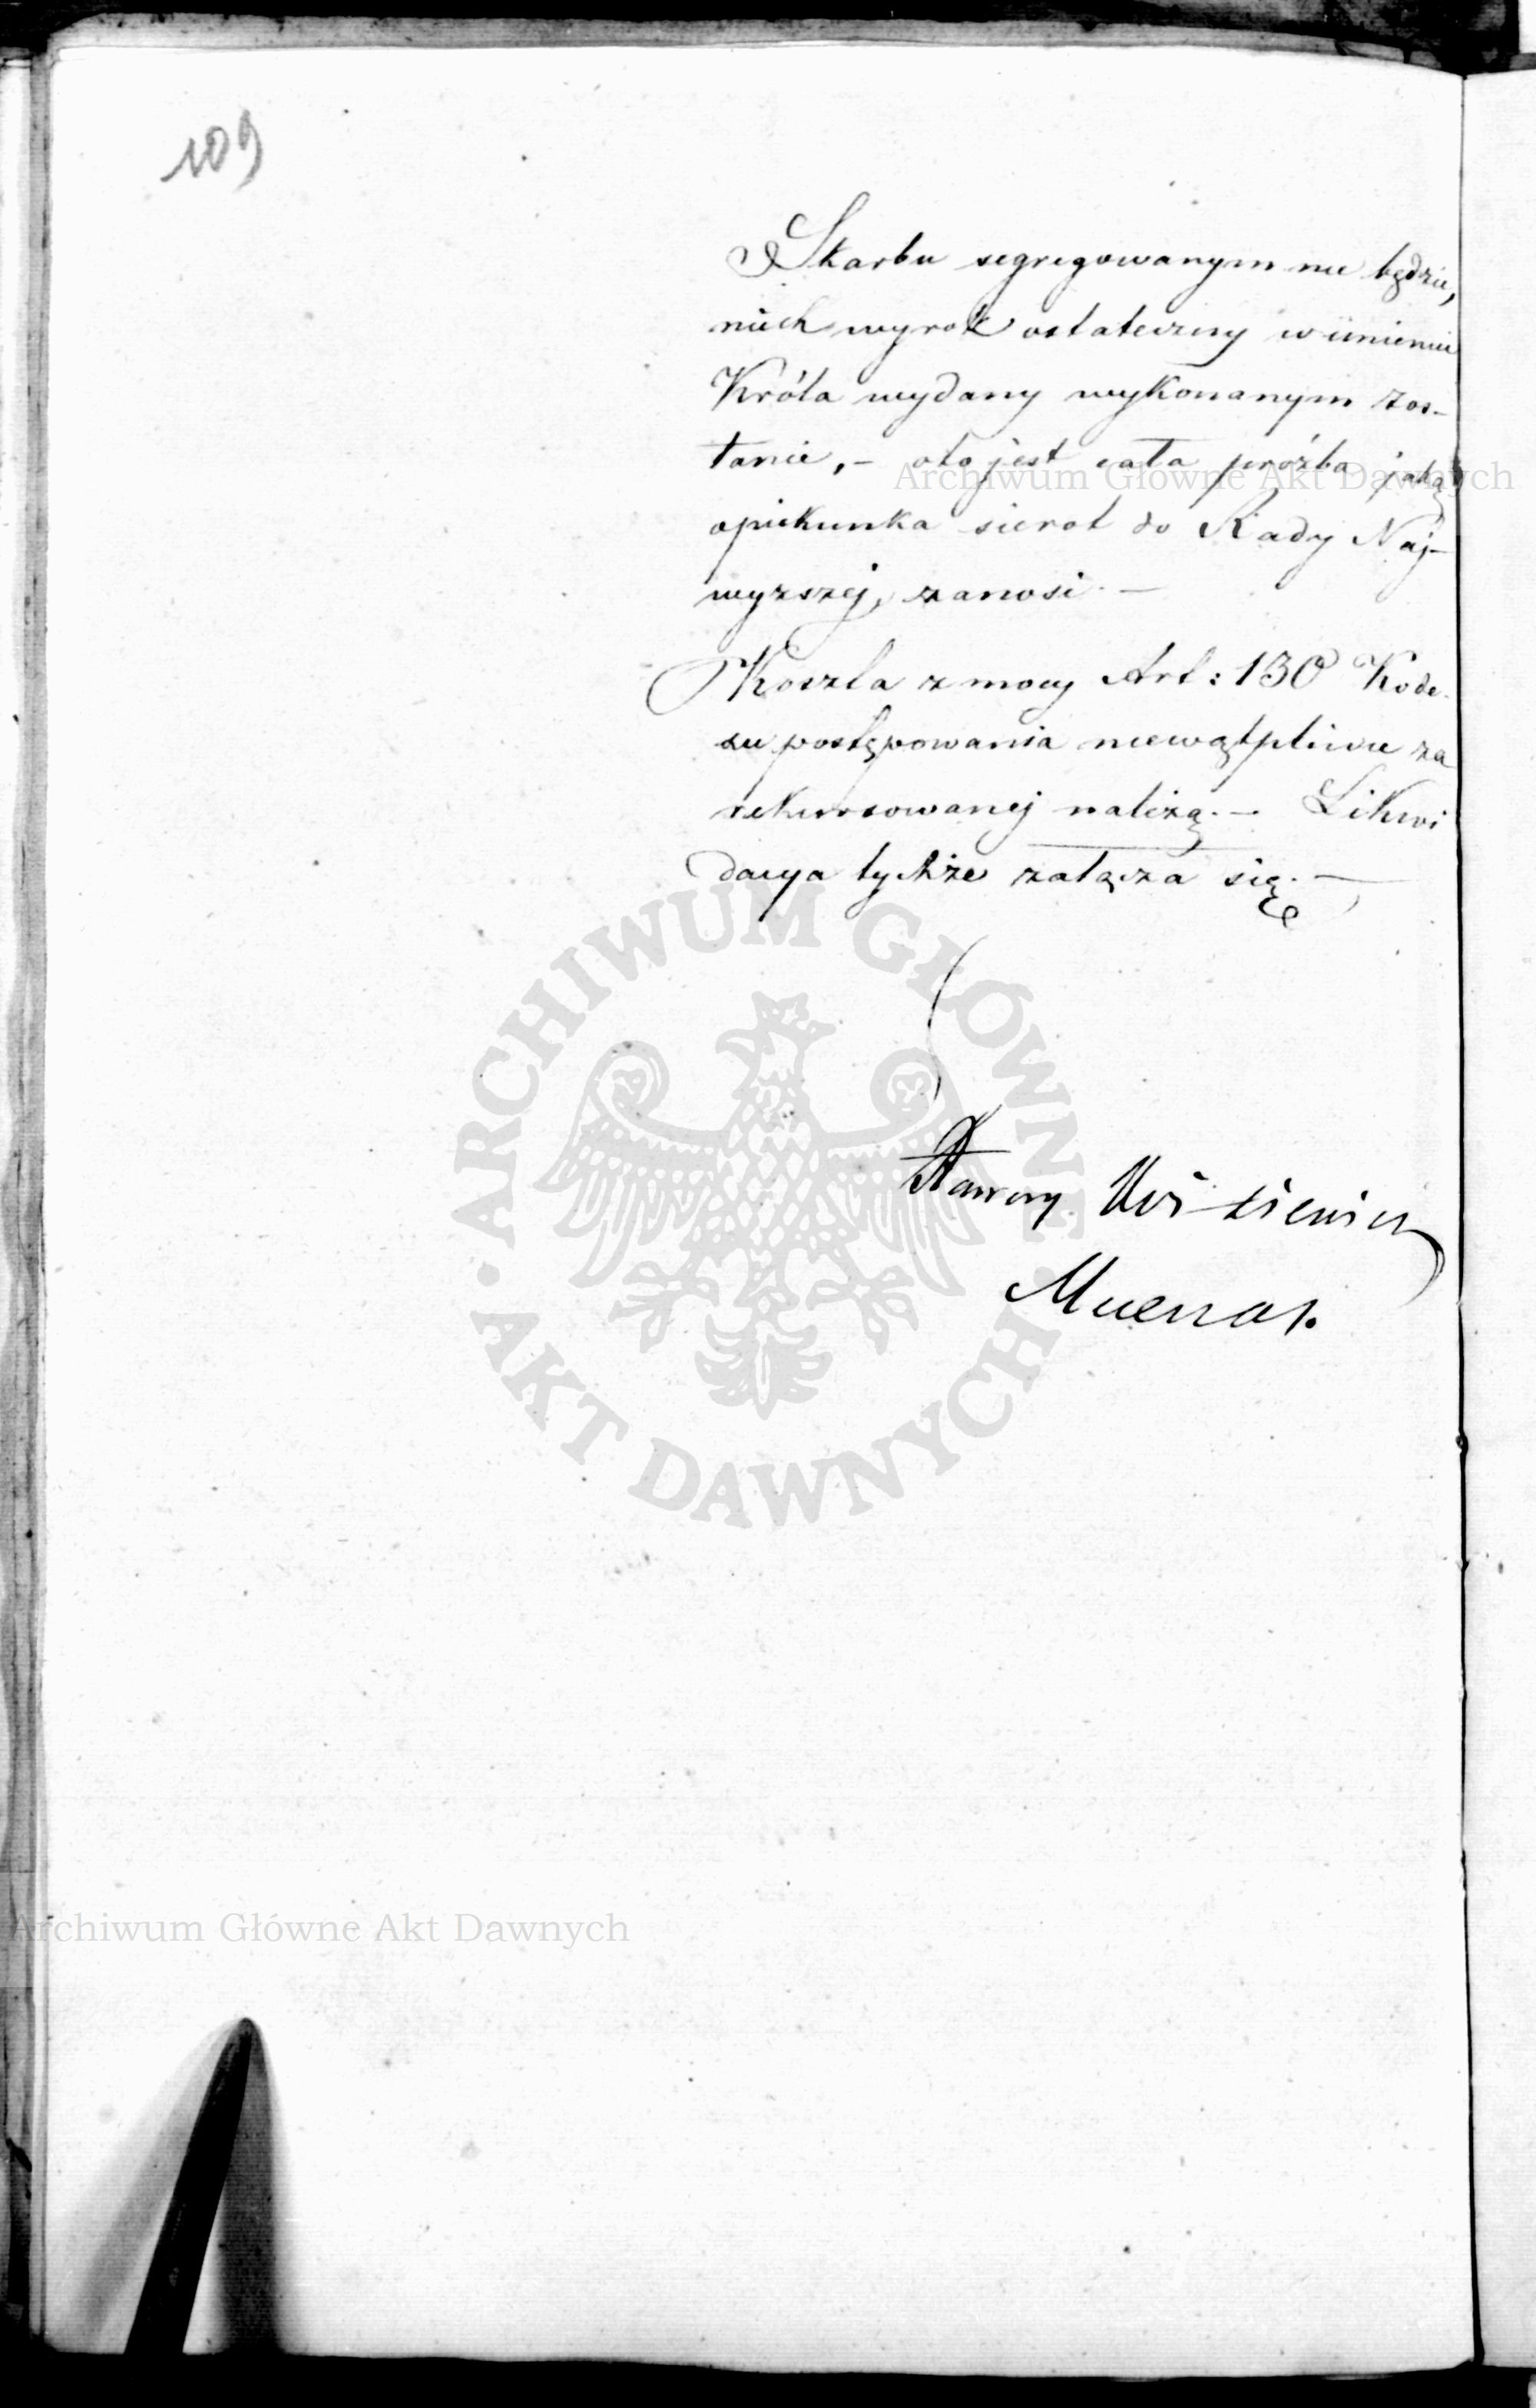 109
Skarbu segregowanym nie będzie,
niech wyrok ostateczny w imieniu
Króla wydany wykonanym zos-
tanie, – oto jest cała prośba jaką
Archiwum Główne Akt Dawnych
opiekunka sierot do Rady Naj-
wyższej, zanosi. –
Koszta z mocy Art: 130 Kode-
xu postępowania niewątpliwie za
rekursowanej należą. – Likwi
dacya tychże załącza się. –
ARCHIWUM GŁÓWNE
AKT DAWNYCH
Mecenas.
Archiwum Główne Akt Dawnych